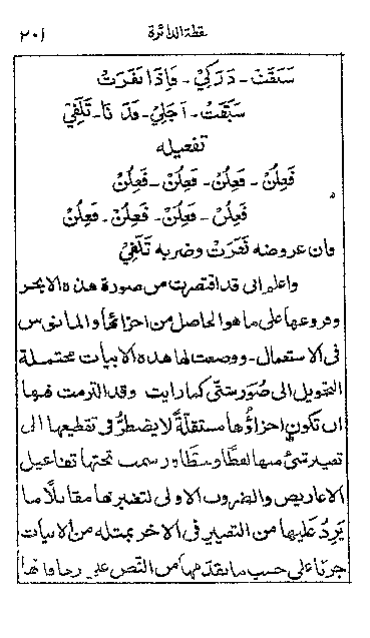 نقطة الدائرة ٢٠١
سَبَقَتْ - دَرَكِيْ - فَاِذَا نَفَرَتْ
سَبَقَتْ - اَجَلِيْ - فَدَ نَا - تَلَفِيْ
تفعيله
فَعِلُنْ - فَعِلُنْ - فَعِلُنْ - فَعِلُنْ
فَعِلُنْ - فَعِلُنْ - فَعِلُنْ - فَعِلُنْ
وان عروضه نَفَرَتْ وضربه تَلَفِيْ
واعلم انى قد اقتصرت من صورة هذه الابحر
وفروعها على ما هو الحاصل من اجزائها والمانوس
فى الاستعمال - ووضعت لها هذه الابيات محتملة
التحويل الى صُوَر ستّى كما رايت وقد التزمت فيها
ان تكون اجزاؤها مستقلّةً لا يضطرُّ فى تقطيعها الى
تصيير شئ منها لفظًا وسطًا ورسمت تحتها تفاعيل
الاعاريض والضروب الاولى لتغييرها مقابلًا ما
يَرِدُ عليها من التغيير فى الاخر بمثله من الابيات
جريًا على حسب ما تقدم من النص على زحافاتها